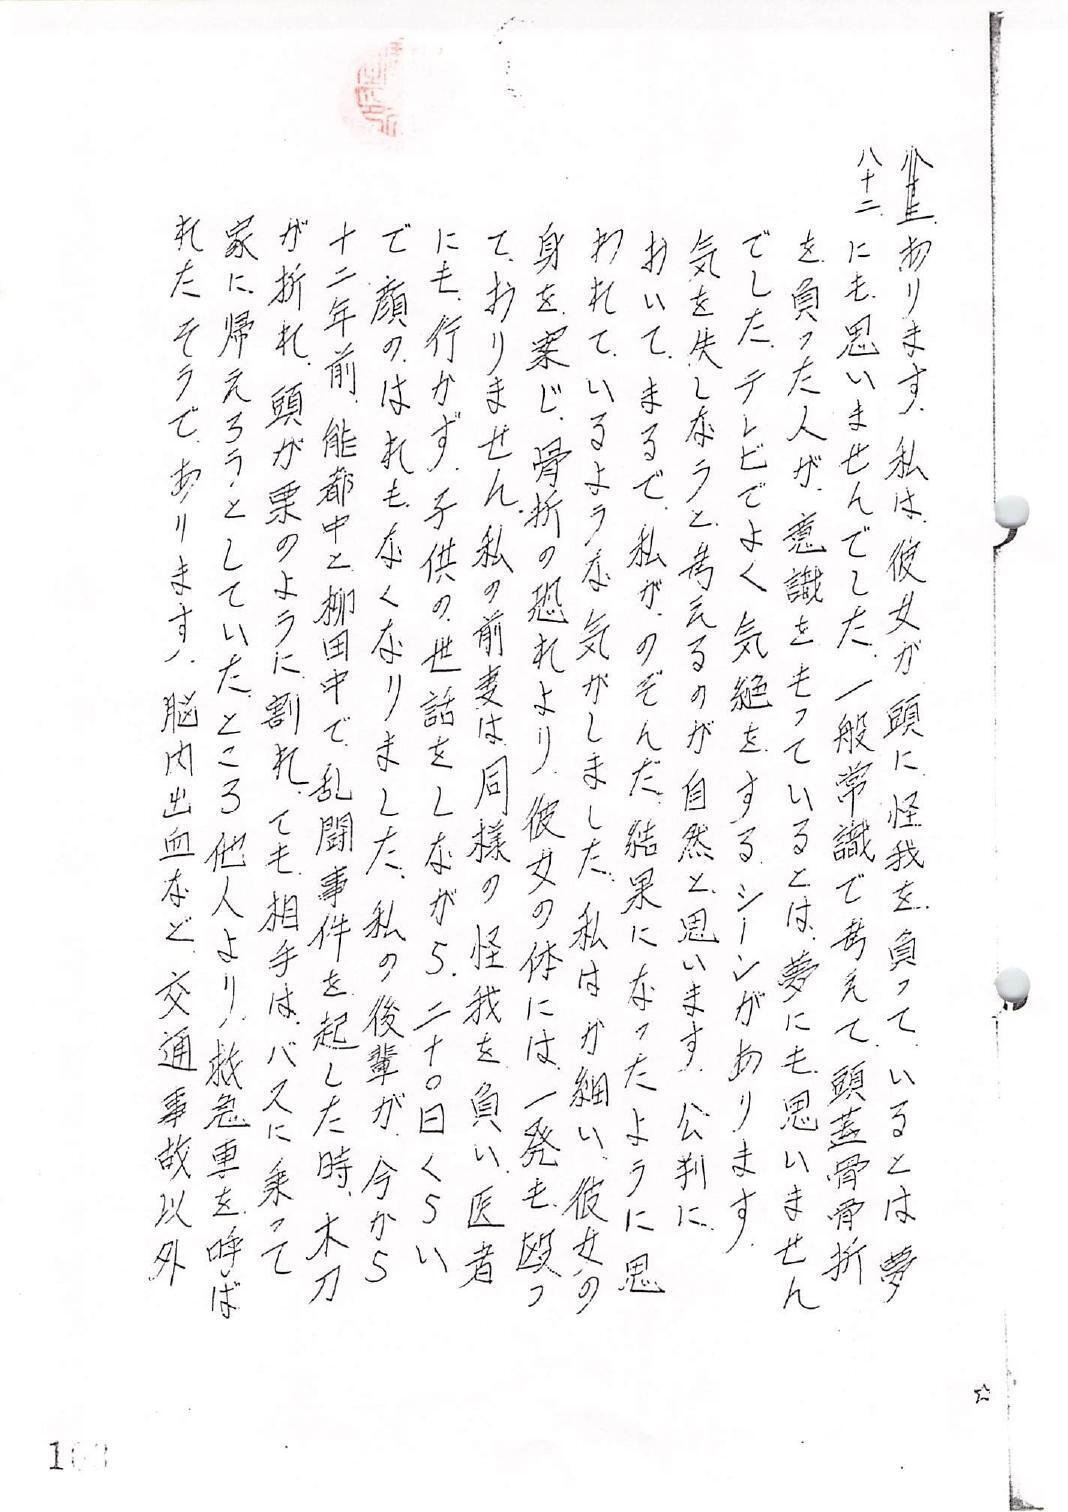 八十二
あります。私は、彼女が、頭に、怪我を、負って、いるとは夢
にも思いませんでした。一般常識で考えて、頭蓋骨骨折
を負った人が、意識をもっているとは、夢にも思いません
でした。テレビでよく気絶をするシーンがあります。
気を失しなうと考えるのが自然と思います。公判に
おいて、まるで、私が、のぞんだ結果になったように思
われて、いるような気がしました。私はか細い、彼女の
身を案じ、骨折の恐れより、彼女の体には、一発も殴っ
て、おりません。私の前妻は、同様の怪我を負い、医者
にも、行かず、子供の世話をしながら、二十〇日くらい
で顔のはれもなくなりました。私の後輩が、今から
十二年前、能都中と柳田中で、乱闘事件を起した時、木刀
が折れ、頭が栗のように割れ、ても相手は、バスに乗って
家に帰えろうとしていた、ところ他人より、救急車を呼ば
れたそうで、あります。脳内出血など、交通事故以外